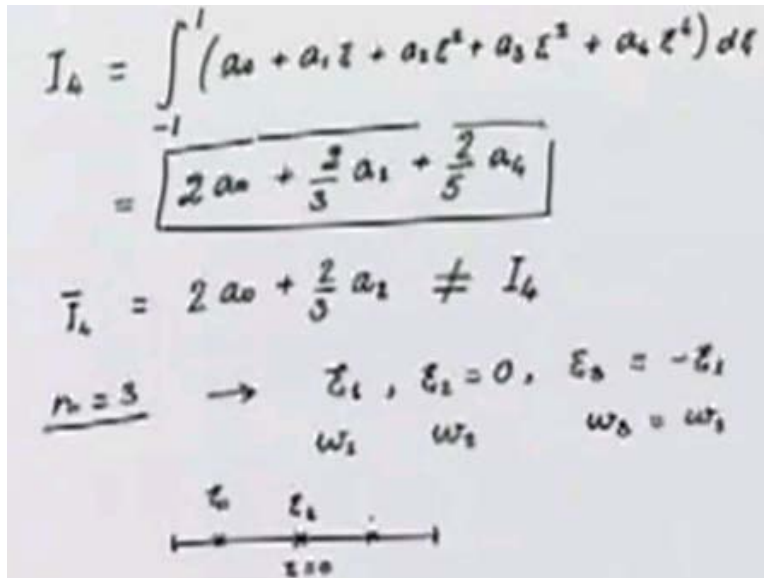 I₄ = ∫₋₁¹ (a₀ + a₁ξ + a₂ξ² + a₃ξ³ + a₄ξ⁴) dξ
= 2a₀ + 2/3 a₂ + 2/5 a₄
Ī₄ = 2a₀ + 2/3 a₂ ≠ I₄
n = 3 → ξ₁ , ξ₂ = 0 , ξ₃ = -ξ₁
ω₁ ω₂ ω₃ = ω₁
ξ₁ ξ₂
ξ=0